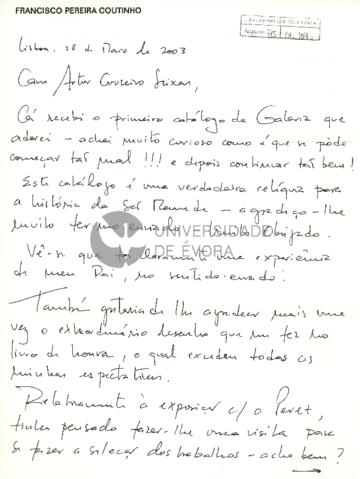 FRANCISCO PEREIRA COUTINHO
Lisboa, 28 de Maio de 2003
Caro Artur Cruzeiro Seixas,
Cá recebi o primeiro catálogo da Galeria que
adorei - achei muito curioso como é que se pôde
começar tão mal !!! e depois continuar tão bem!
Este catálogo é uma verdadeira relíquia para
a história da São Mamede - agradeço-lhe
muito ter-mo enviado. Muito Obrigado.
UNIVERSIDADE
DE ÉVORA
Vê-se que foi claramente uma experiência
do meu Pai, no sentido errado!
Também gostaria de lhe agradecer mais uma
vez o extraordinário desenho que me fez no
livro de honra, o qual excedeu todas as
minhas expectativas.
Relativamente à exposição c/ o Peret,
tinha pensado fazer-lhe uma visita para
se fazer a selecção dos trabalhos - acha bem?